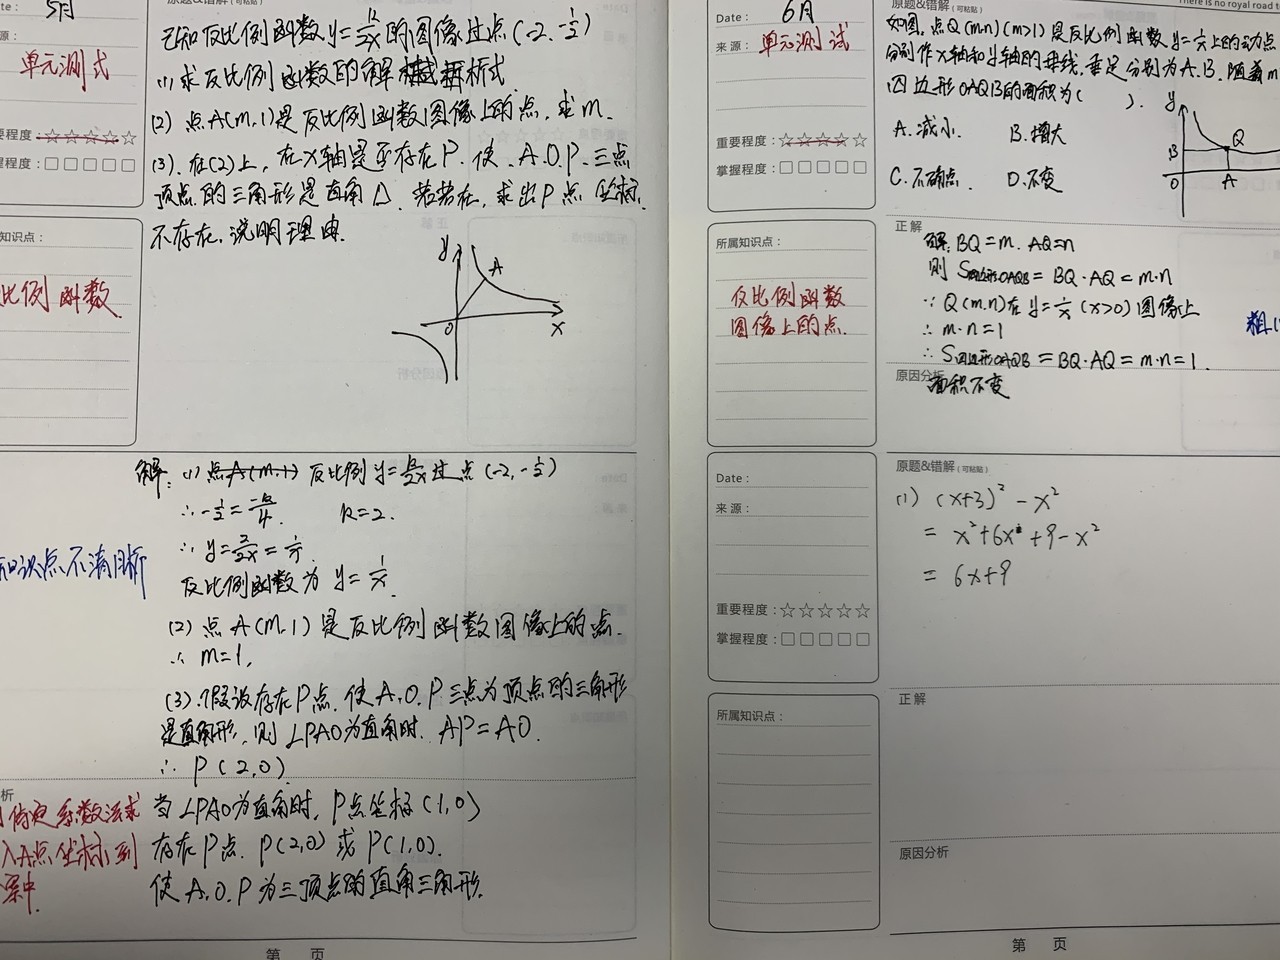 5月
Date：
单元测式
重要程度：☆☆☆☆☆
程度：□□□□□
知识点：
比例函数
已知反比例函数y=k/2x的图像过点(-2,-1/2)
(1)求反比例函数的解析式
(2)点A(m,1)是反比例函数图像上的点，求m.
(3).在(2)上，在X轴是否存在P.使.A.O.P.三点
顶点的三角形是直角△.若存在，求出P点坐标，
不存在，说明理由.
y
A
O
x
解：(1)反比例y=k/2x过点(-2,-1/2)
∴-1/2=-k/4. k=2.
∴y=2/2x=1/x.
反比例函数为y=1/x.
(2)点A(m,1)是反比例函数图像上的点.
∴m=1,
(3).假设存在P点.使A.O.P三点为顶点的三角形
是直角形，则∠PAO为直角时.AP=AO.
∴P(2,0)
当∠PAO为直角时，P点坐标(1,0)
存在P点.P(2,0)或P(1,0).
使A.O.P为三顶点的直角三角形.
知识点不清晰
析
待定系数法求
入A点坐标到
第 页
Date：
6月
来源：
单元测试
重要程度：☆☆☆☆☆
掌握程度：□□□□□
所属知识点：
反比例函数
图像上的点.
There is no royal road to
原题&错解（可粘贴）
如图，点Q(m,n)(m>1)是反比例函数y=1/x上的动点
分别作X轴和y轴的垂线，垂足分别为A.B.随着m
四边形OAQB的面积为( ).
A.减小. B.增大
C.不确点. D.不变
y
B
Q
O
A
正解
解：BQ=m.AQ=n
则S四边形OAQB=BQ·AQ=m·n
∵Q(m.n)在y=1/x(x>0)图像上
∴m·n=1
∴S四边形OAQB=BQ·AQ=m·n=1.
面积不变
原因分析
粗心
Date：
来源：
重要程度：☆☆☆☆☆
掌握程度：□□□□□
所属知识点：
原题&错解（可粘贴）
(1) (x+3)²-x²
= x²+6x+9-x²
= 6x+9
正解
原因分析
第 页